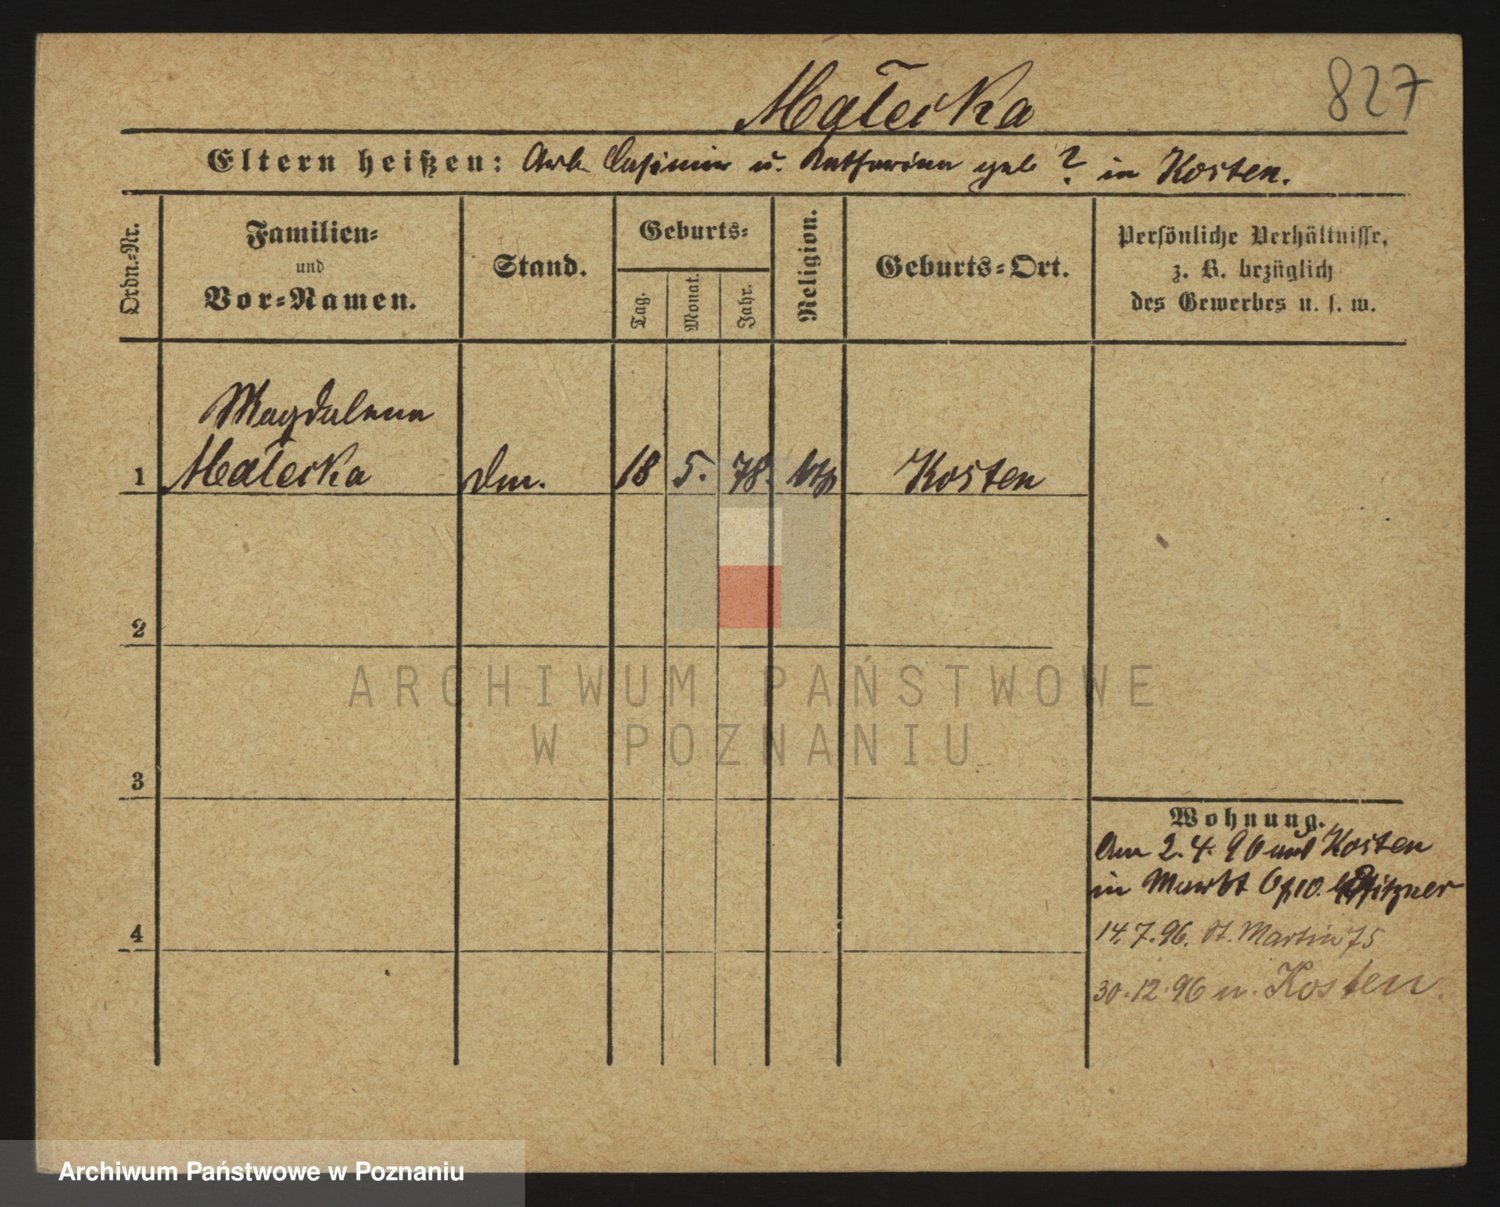 Małecka
827
Eltern heißen: Arb. Casimir u. Katharina geb ? in Kosten.
Ordn.-Nr.
Familien-
und
Vor-Namen.
Stand.
Geburts-
Tag.
Monat.
Jahr.
Religion.
Geburts-Ort.
Persönliche Verhältnisse,
z. B. bezüglich
des Gewerbes u. s. w.
Magdalena
1 Małecka 18 5. 78. kth Kosten
2
3
4
Wohnung.
Am 2.4.96 aus Kosten
in Markt 10. Pfitzner
14.7.96. St. Martin 75
30.12.96 n. Kosten.
ARCHIWUM PAŃSTWOWE
W POZNANIU
Archiwum Państwowe w Poznaniu